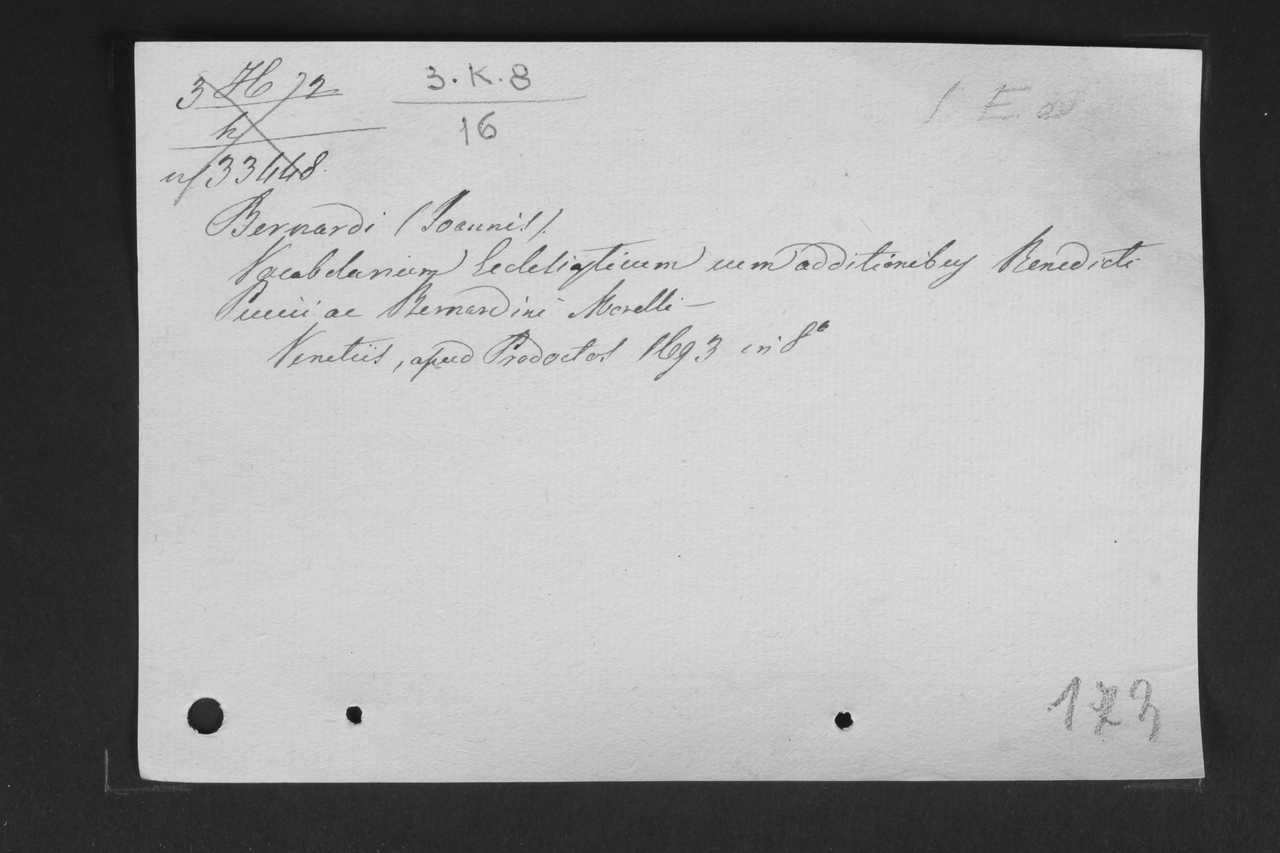 3 H 72
h
n/ 33448.
3. K. 8
16
1 E.
Bernardi (Joannis).
Vocabularium Ecclesiasticum cum additionibus Benedicti
Puccii ac Bernardini Morelli —
Venetiis, apud Prodoctos 1693 in 8°
173